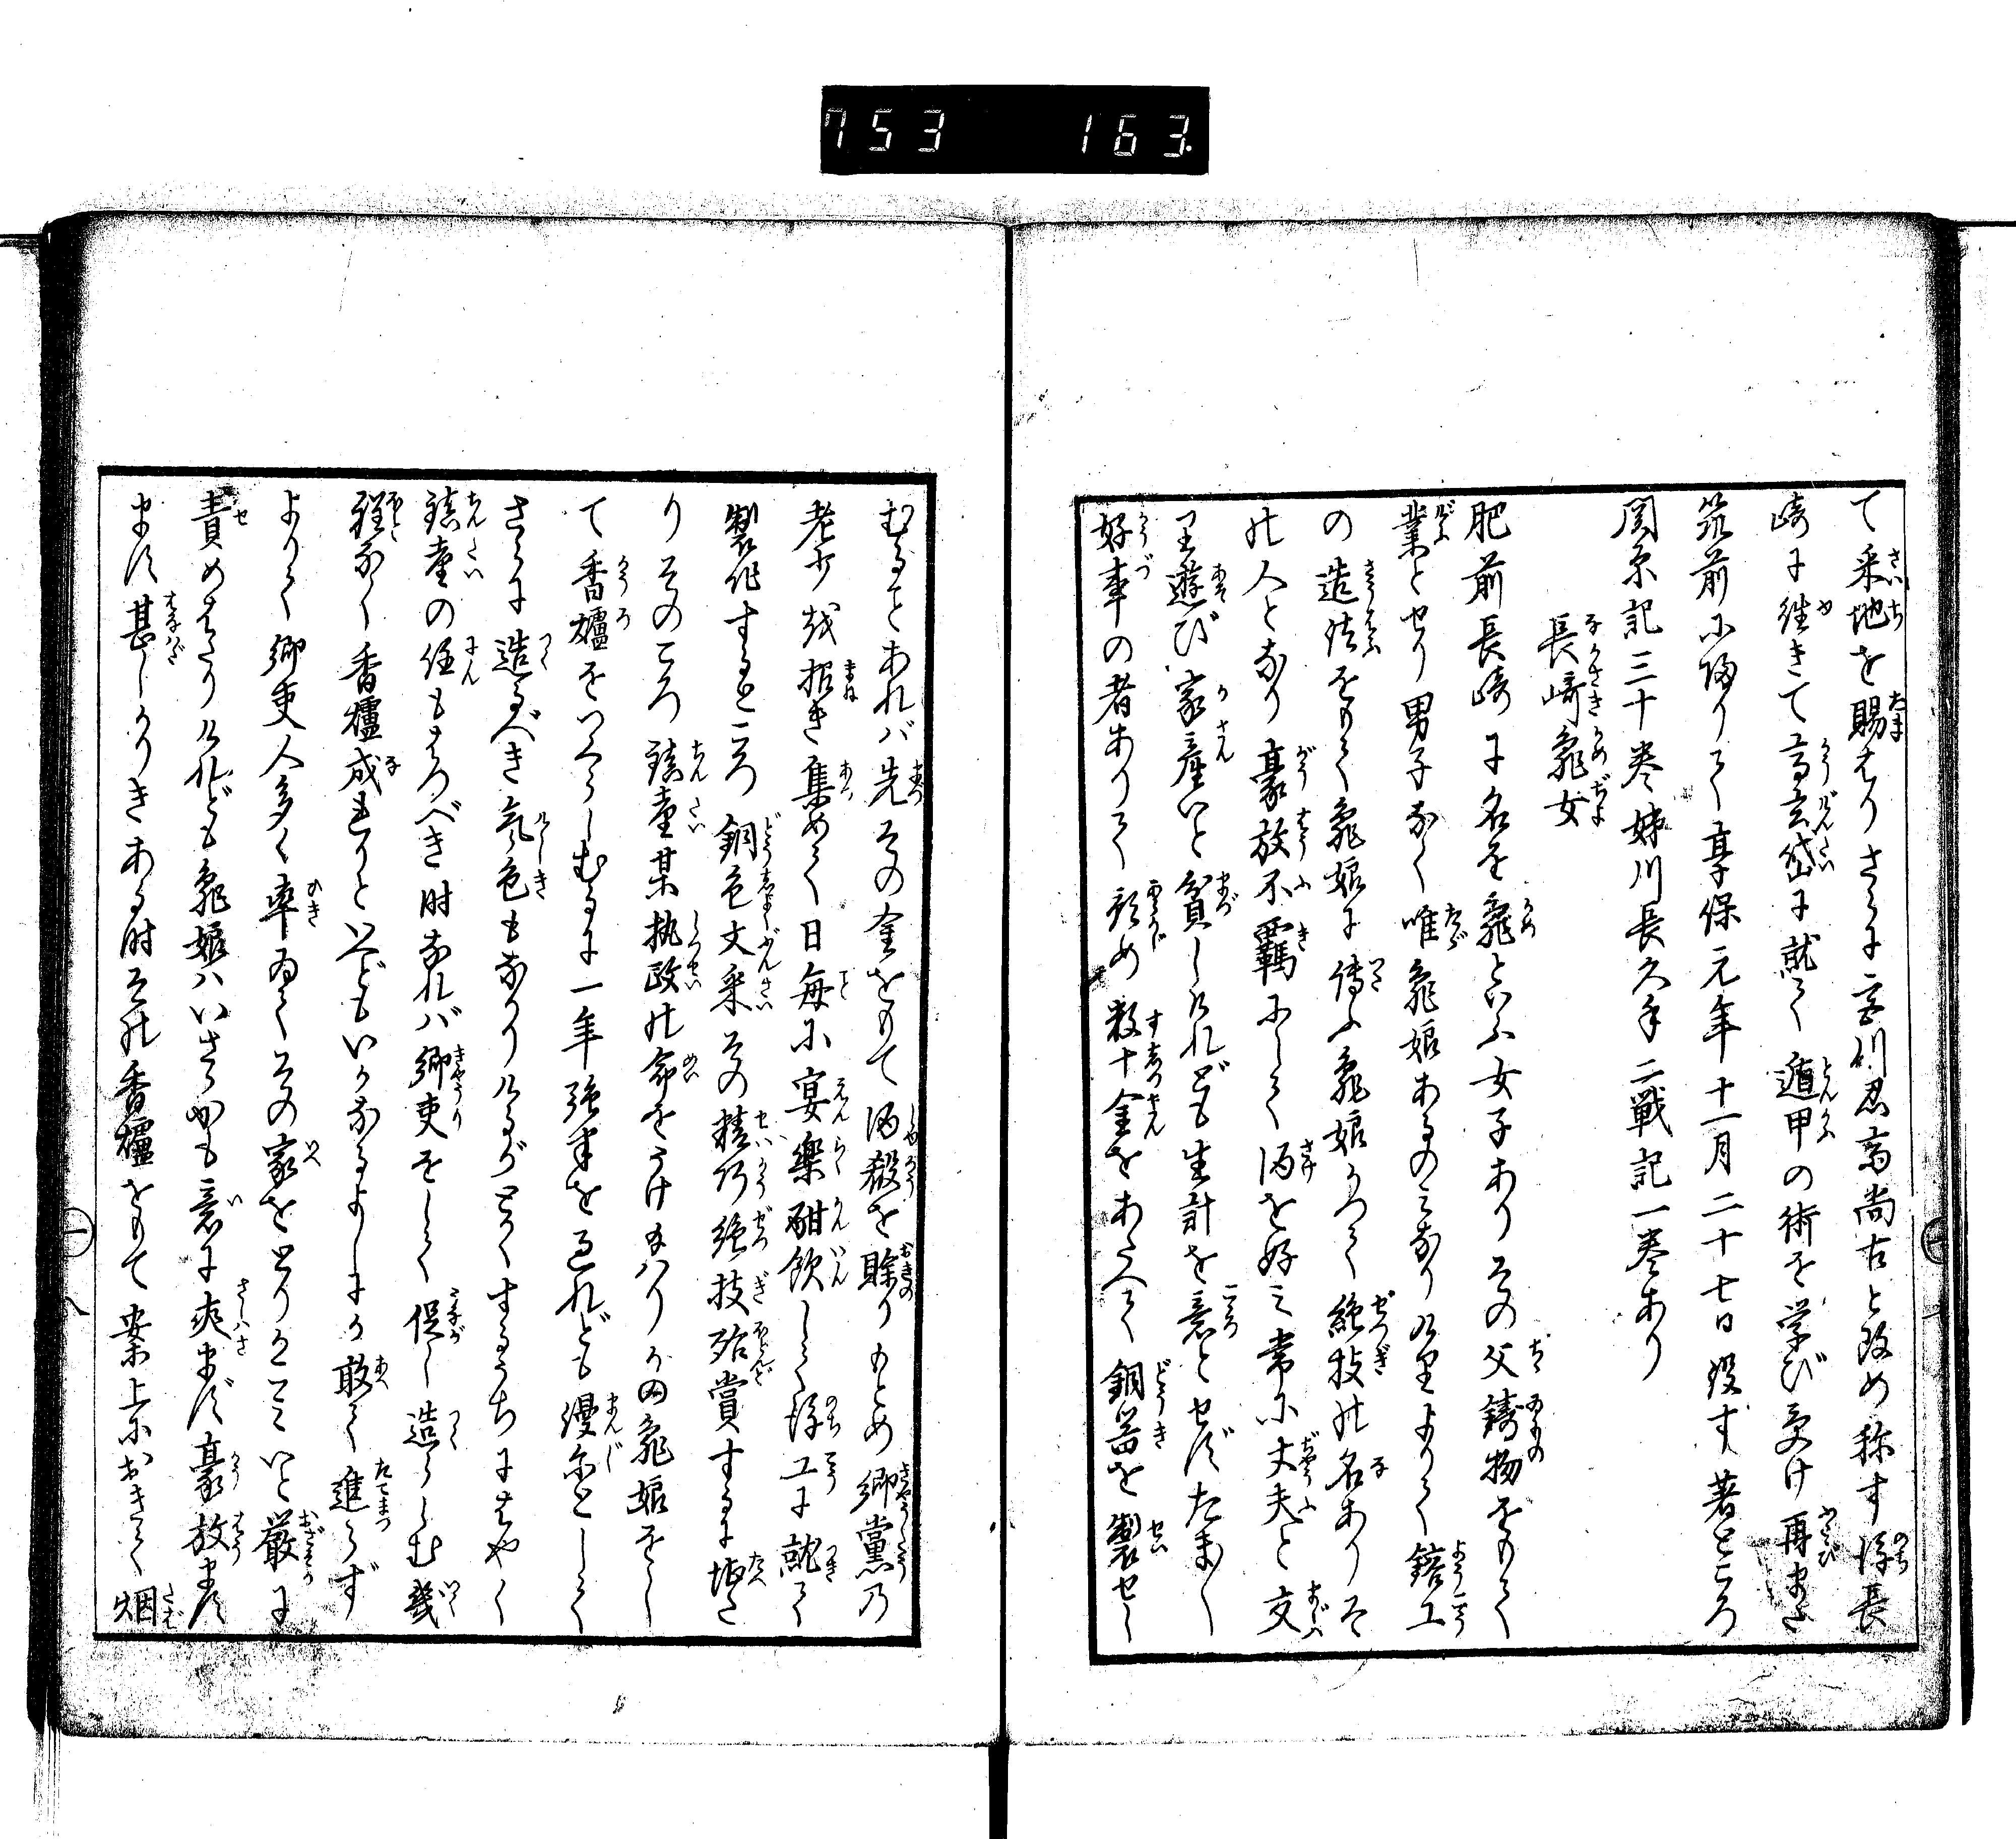 753 163
て采地を賜はりさらに宮川忍斎尚古と改め称す後長
崎に往きて高玄岱に就て遁甲の術を学び受け再また
筑前に帰りて享保元年十一月二十七日歿す著ところ
関原記三十巻姉川長久手二戦記一巻あり
長崎龜女
肥前長崎に名を龜といふ女子ありその父鋳物をもて
業とせり男子なく唯龜娘あるのみなり
の造法をもて龜娘に傳ふ龜娘かつて絶技の名ありそ
の人となり豪放不羈にして酒を好み常に丈夫と交
り遊び家産いと貧しけれども生計を意とせずたま〳〵
好事の者ありて預め数十金をあたへて銅器を製せし
むることあれバ先その金をもて酒殽を賖りもとめ郷黨乃
老少を招き集めて日毎に宴樂酣飲して後工に就て
製作するところ銅色文采その精巧絶技殆賞するに堪た
りそのころ鎮臺某執政の命をうけ給ハりかの龜娘をし
て香爐をつくらしむるに一年強半を過れども漫尓として
さらに造るべき氣色もなかりけるがとかくするうちにはやく
鎮臺の任もはつべき時なれバ郷吏をして促し造らしむ幾
程なく香爐成れりといへどもいかなるよしにか敢て進らず
よりて郷吏人多く率ゐてその家をとりかこミいと厳に
責めはたりけれども龜娘ハいさゝかも意に夾まず豪放ます
ます甚しかりきある時その香爐をもて案上におきて烟
十八